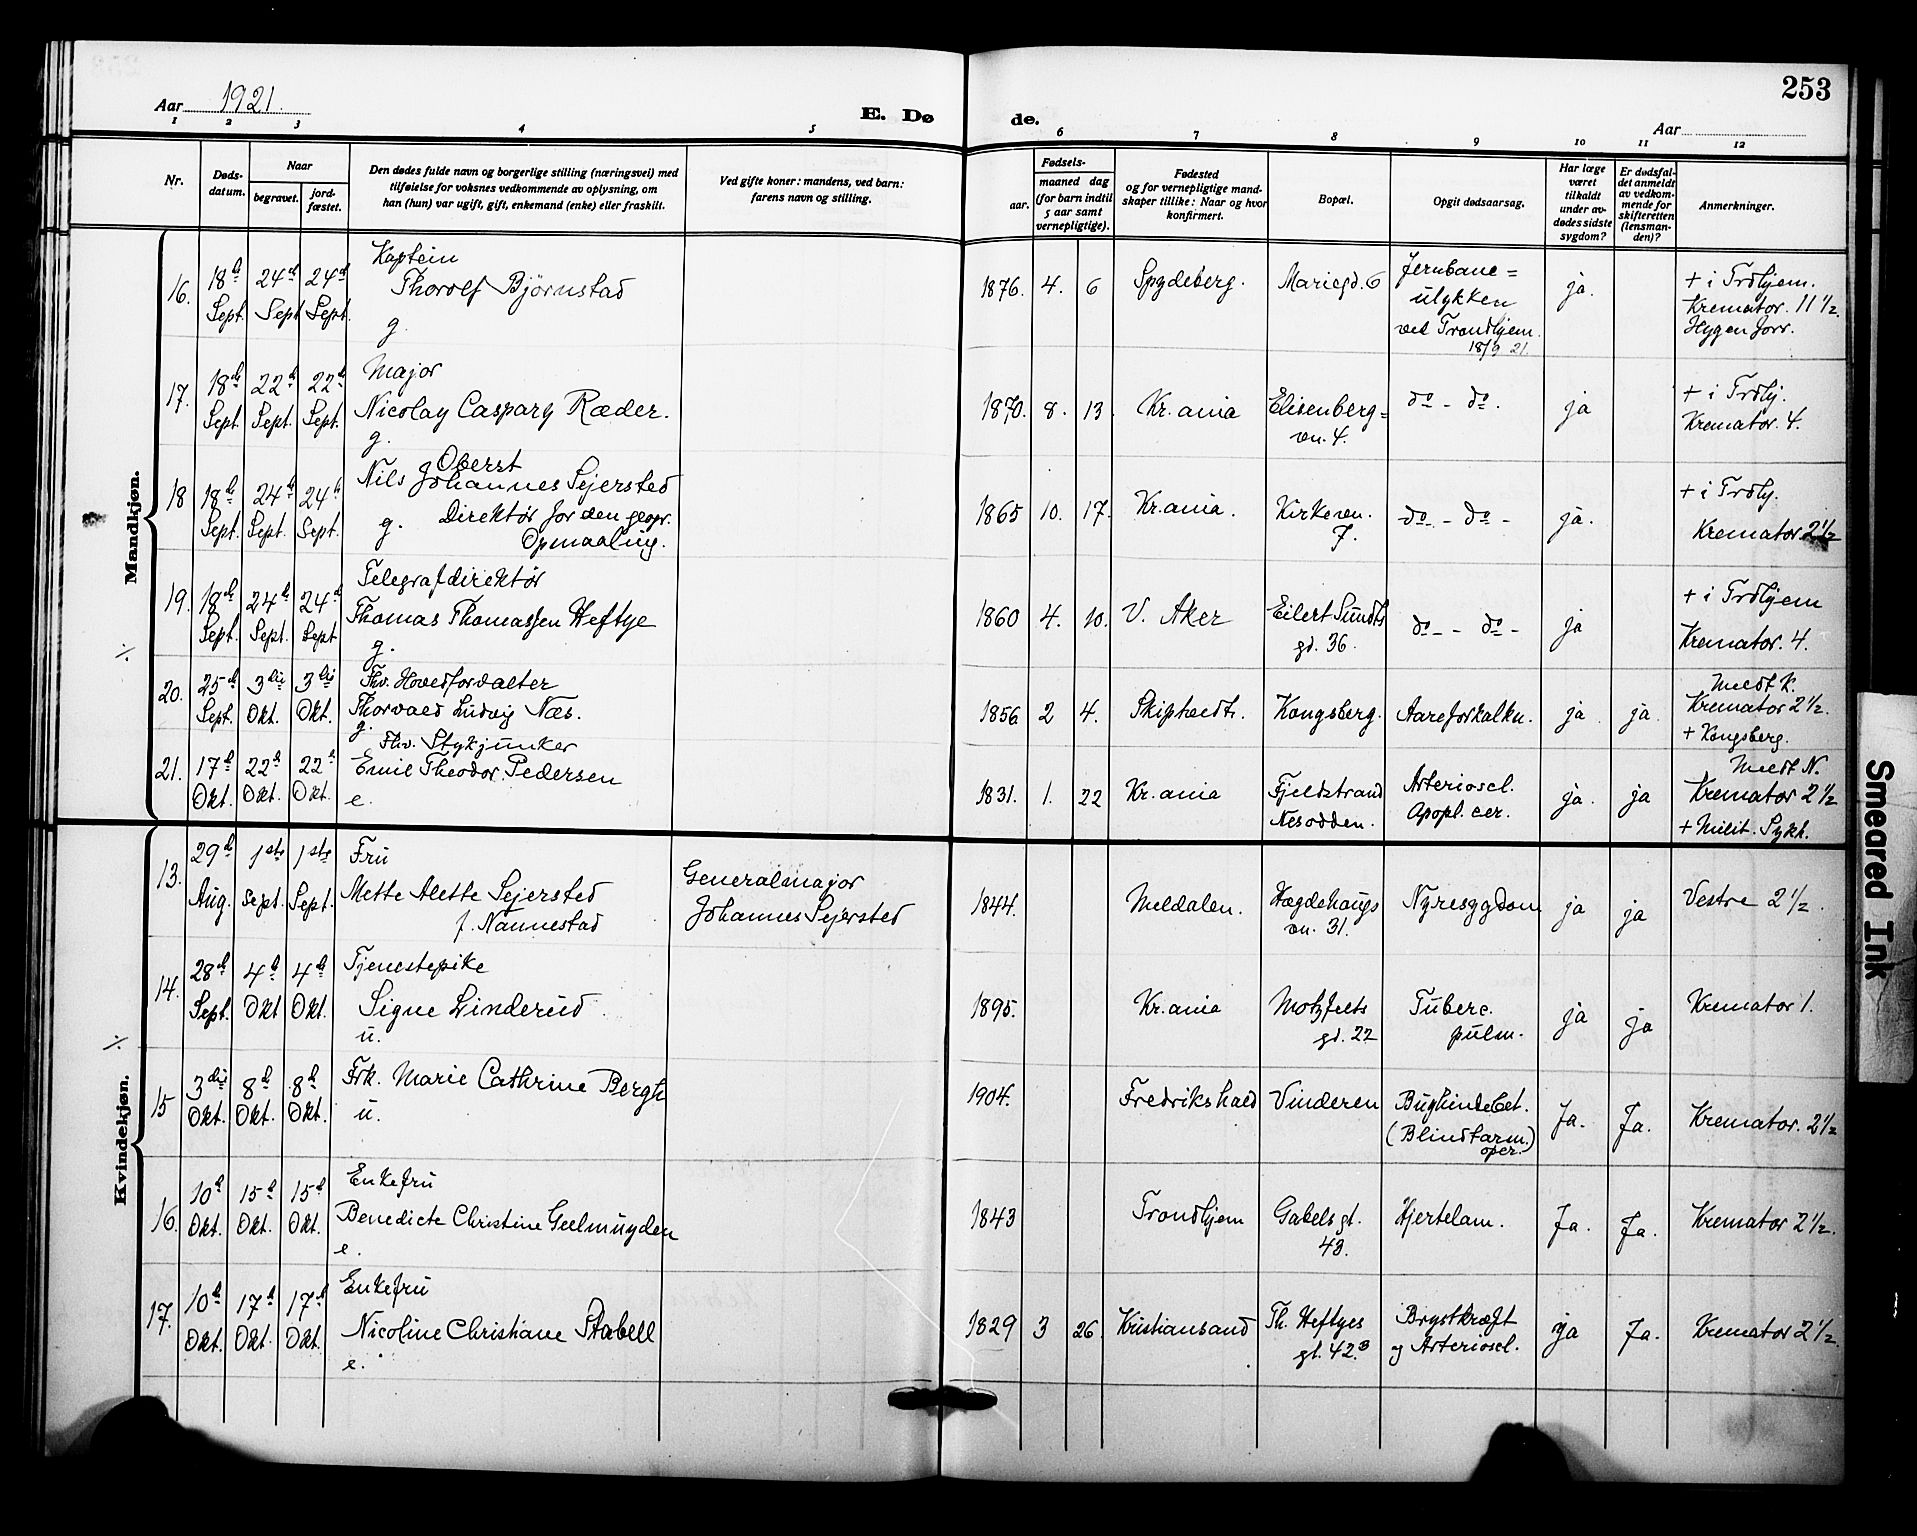 253
Aar 1921.
E. Dø
de.
Aar
1 2 3 4 5 6 7 8 9 10 11 12
Nr.
Døds-
datum.
Naar
begravet.
jord-
fæstet.
Den dødes fulde navn og borgerlige stilling (næringsvei) med
tilføielse for voksnes vedkommende av oplysning, om
han (hun) var ugift, gift, enkemand (enke) eller fraskilt.
Ved gifte koner: mandens, ved barn:
farens navn og stilling.
Fødsels-
aar.
maaned dag
(for barn indtil
5 aar samt
vernepligtige).
Fødested
og for vernepligtige mand-
skaper tillike: Naar og hvor
konfirmert.
Bopæl.
Opgit dødsaarsag.
Har læge
været
tilkaldt
under av-
dødes sidste
sygdom?
Er dødsfal-
det anmeldt
av vedkom-
mende for
skifteretten
(lensman-
den)?
Anmerkninger.
Mandkjøn.
16. 18de Sept. 24de Sept 24de Sept.
Kaptein
Thorolf Bjørnstad
g.
1876. 4. 6 Spydeberg. Mariegd. 6
Jernbane=
ulykken
ved Trondhjem.
18/9 21.
ja.
+ i Trdhjem.
Kremator. 11 1/2.
Hygen forr.
17. 18de Sept. 22de Sept. 22de Sept.
Major
Nicolay Caspary Ræder.
g.
1870. 8. 13. Kr.ania
Elisenberg=
vn. 4.
do - do.
ja
+ i Trdhj.
Kremator. 4.
18 18de Sept. 24de Sept. 24de Sept.
Oberst
Nils Johannes Sejersted
g. Direktør for den geogr.
Opmaaling.
1865 10. 17. Kr.ania.
Kirkevn.
7.
do - do -
ja.
+ i Trdhj.
Kremator 2 1/2
19. 18de Sept. 24de Sept. 24de Sept
Telegrafdirektør
Thomas Thomassen Heftye
g.
1860 4. 10. V. Aker
Eilert Sundts
gd. 36.
do - - do -
ja
+ i Trdhjem
Kremator. 4.
20. 25de Sept. 3die Okt. 3die Okt.
Fhv. Hovedforvalter
Thorvald Ludvig Næs.
g.
1856 2 4. Skiptvedt. Kongsberg. Aareforkalkn. ja. ja.
Meldt K.
Kremator 2 1/2.
+ Kongsberg.
21. 17de Okt. 22de Okt. 22de Okt.
Fhv. Stykjunker
Emil Theodor Pedersen
e.
1831. 1. 22 Kr.ania
Fjeldstrand
Nesodden.
Arterioscl.
Apopl. cer.
ja. ja
Meldt N.
Kremator 2 1/2
+ Milit. Sykh.
Kvindekjøn.
13. 29de Aug. 1ste Sept. 1ste Sept.
Fru
Mette Alette Sejersted
f. Nannestad
Generalmajor
Johannes Sejersted
1844. Meldalen.
Hægdehaugs
vn. 31.
Nyresygdom ja ja Vestre 2 1/2.
14. 28de Sept. 4de Okt 4de Okt.
Tjenestepike
Signe Linderud.
u.
1895. Kr.ania
Motzfeldts
gd. 22
Tuberc.
pulm.
ja ja Kremator 1.
15 3die Okt. 8de Okt. 8de Okt.
Frk. Marie Cathrine Bergh
u.
1904. Fredrikshald Vinderen
Bughindebet.
(Blindtarm.)
oper.
Ja. Ja. Kremator. 2 1/2
16. 10de Okt. 15de Okt. 15de Okt.
Enkefru
Benedicte Christine Geelmuyden
e.
1843 Trondhjem
Gabels gt.
43.
Hjertelam. Ja. Ja. Kremator 2 1/2.
17. 10de Okt. 17de Okt. 17de Okt.
Enkefru
Nicoline Christiane Stabell
e.
1829 3 26. Kristiansand
Th. Heftyes
gt. 42.3
Brystkræft
og Arterioscl.
ja Ja. Kremator 2 1/2.
Smeared Ink